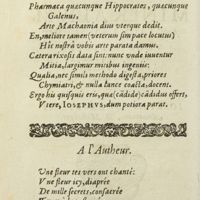 Pharmaca quæcunque Hippocrates, quæcunque
Galenus,
Arte Machaonia dius uterque dedit.
En, meliore tamen (veterum sim pace locutus)
Hîc nostrâ vobis arte parata damus.
Cætera vixosis data sint: nunc unde iuventur
Mitia, largimur mitibus ingeniis:
Qualia, nec simili methodo digesta, priores
Chymiatri, & nulla tulere coacta, docent.
Ergo his quisquis eris, quæ (cādide) cādidus offert,
Utere, IOSEPHUS, dum potiora parat.
A l'Autheur.
Vne fleur tes vers ont chanté:
Vne fleur icy, diaprée
De mille secrets, consacrée